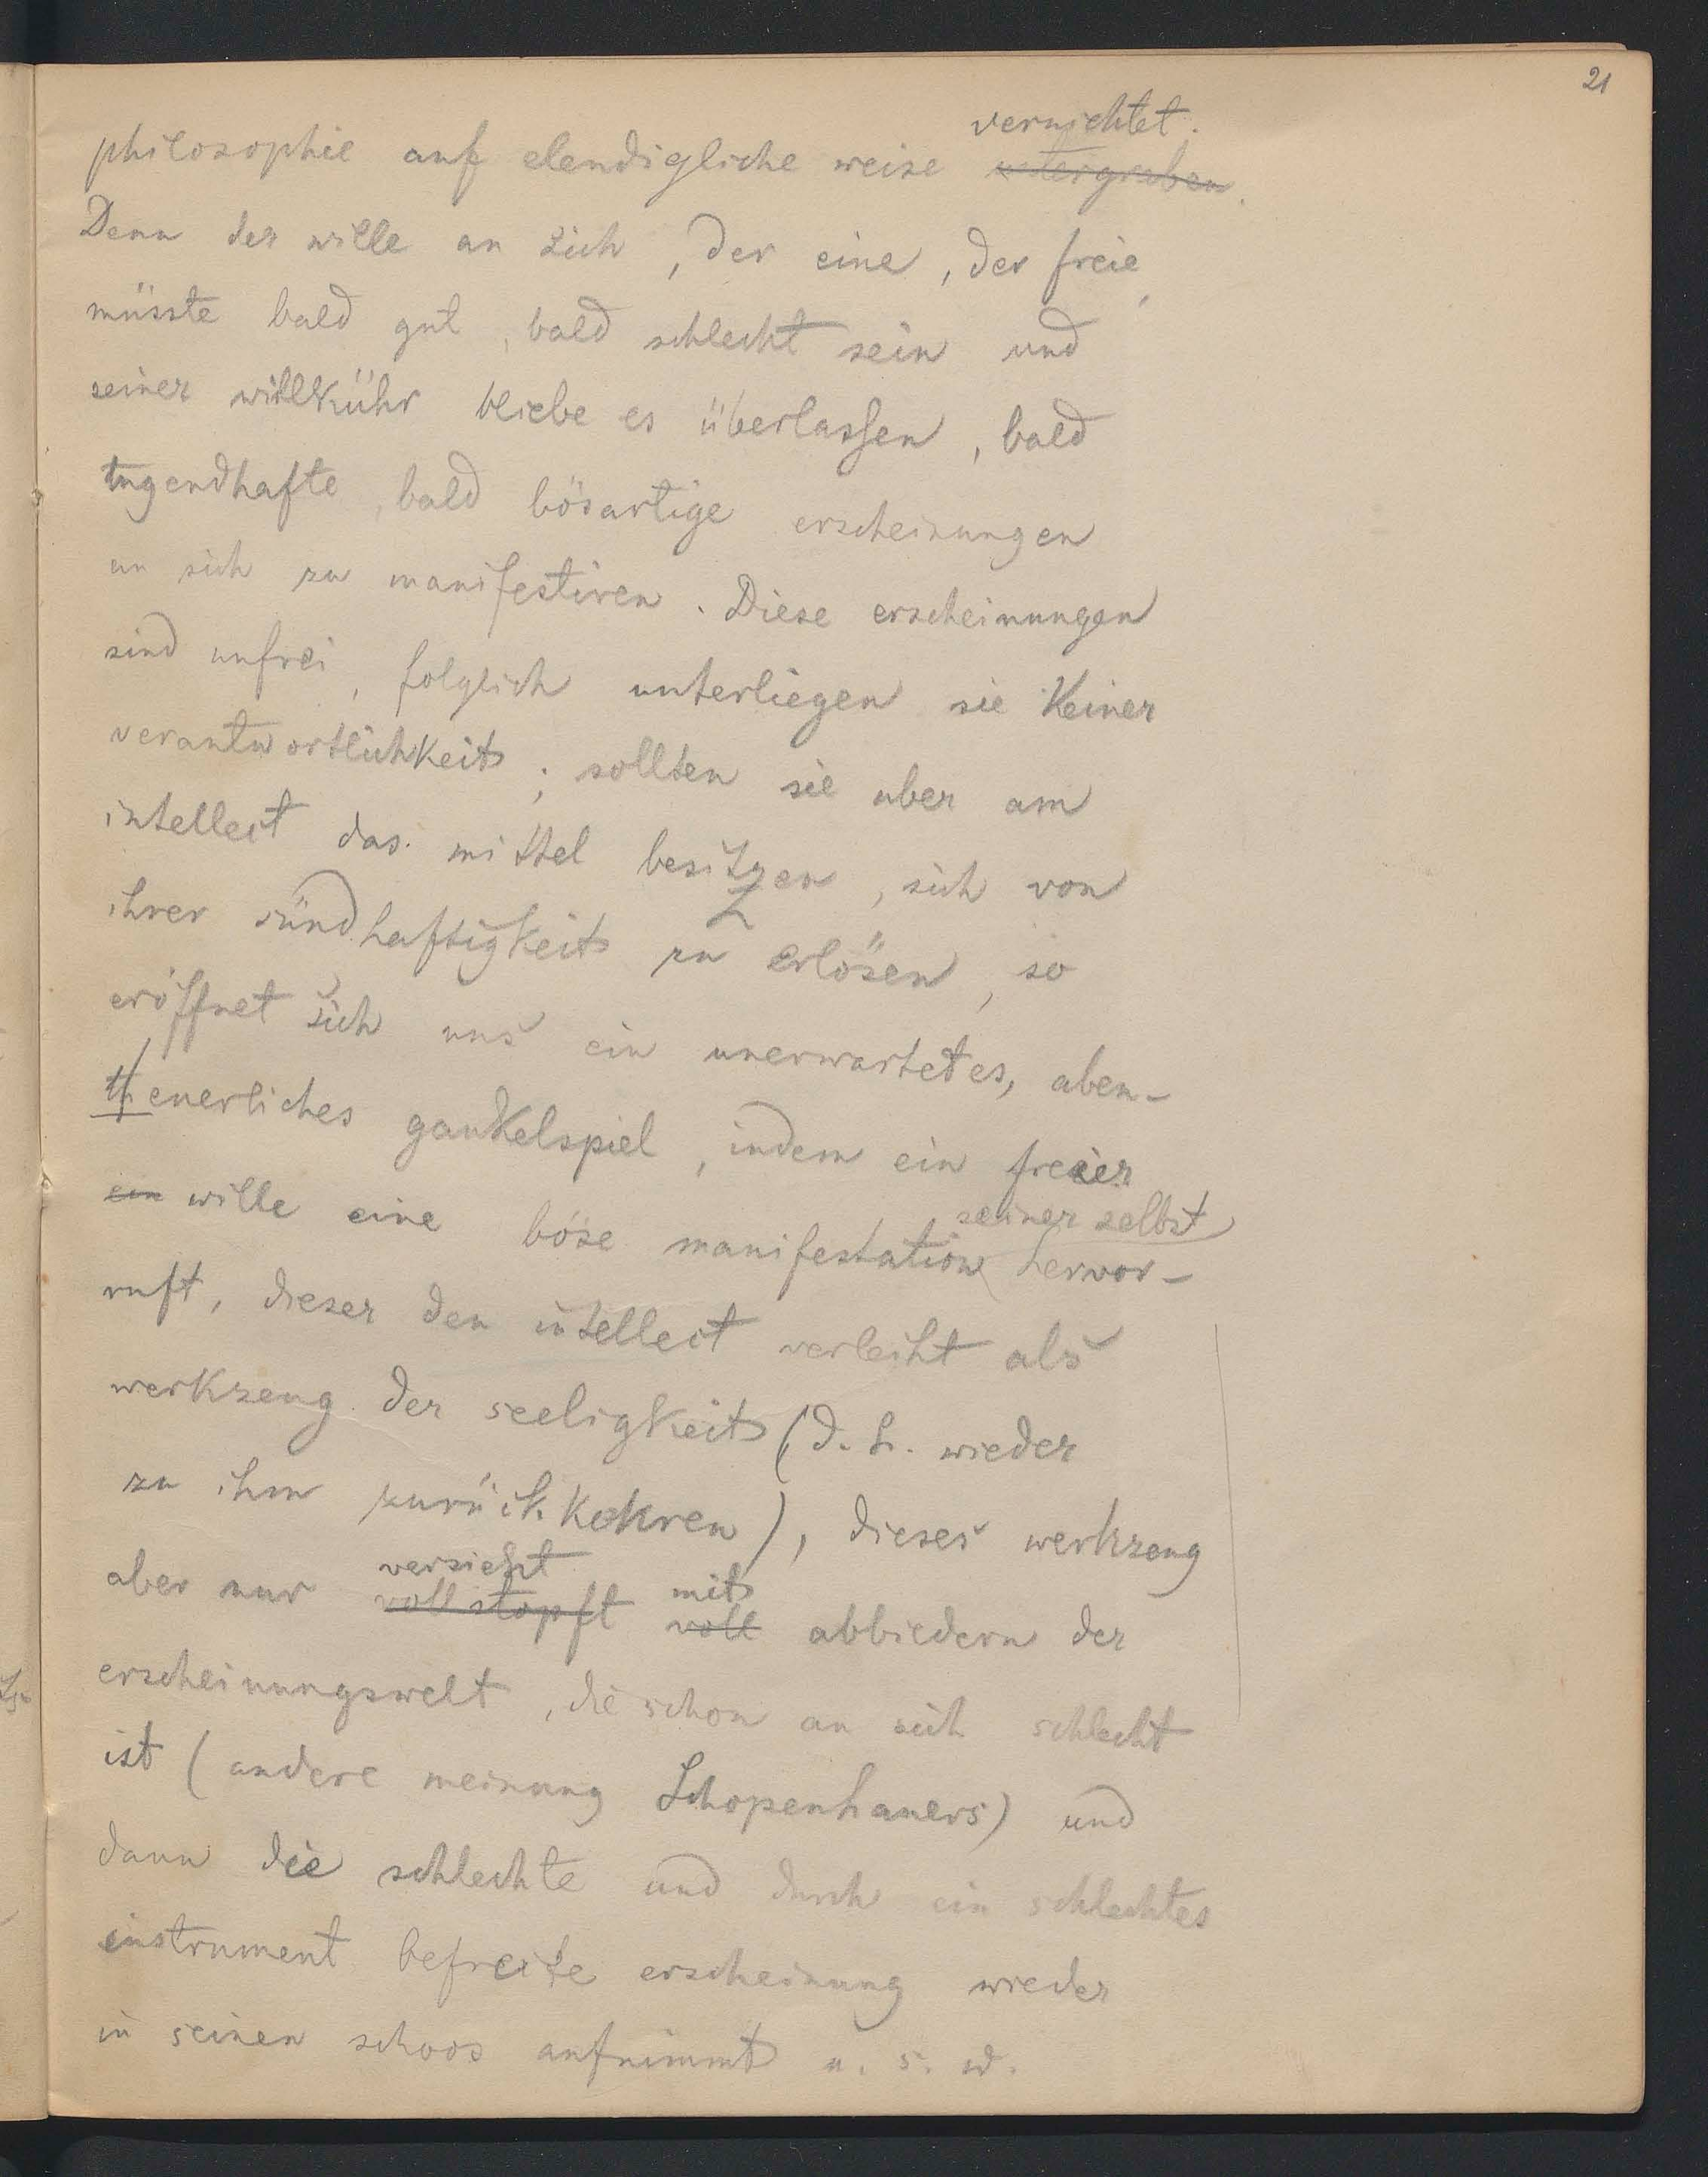 21
vernichtet.
philosophie auf elendigliche weise untergraben.
Denn der wille an sich, der eine, der freie,
müsste bald gut, bald schlecht sein und
seiner willkühr bliebe es überlassen, bald
tugendhafte, bald bösartige erscheinungen
an sich zu manifestiren. Diese erscheinungen
sind unfrei, folglich unterliegen sie keiner
verantwortlichkeit; sollten sie aber am
intellect das mittel besitzen, sich von
ihrer sündhaftigkeit zu erlösen, so
eröffnet sich uns ein unerwartetes, aben-
theuerliches gaukelspiel, indem ein freier
ein wille eine böse manifestation seiner selbst hervor-
ruft, dieser den intellect verleiht als
werkzeug der seeligkeit (d. h. wieder
zu ihm zurückkehren), dieses werkzeug
versieht mit
aber nur vollstopft voll abbiedern der
erscheinungswelt, die schon an sich schlecht
ist (andere meinung Schopenhauers) und
dann die schlechte und durch ein schlechtes
instrument befreite erscheinung wieder
in seinen schoos aufnimmt u. s. w.